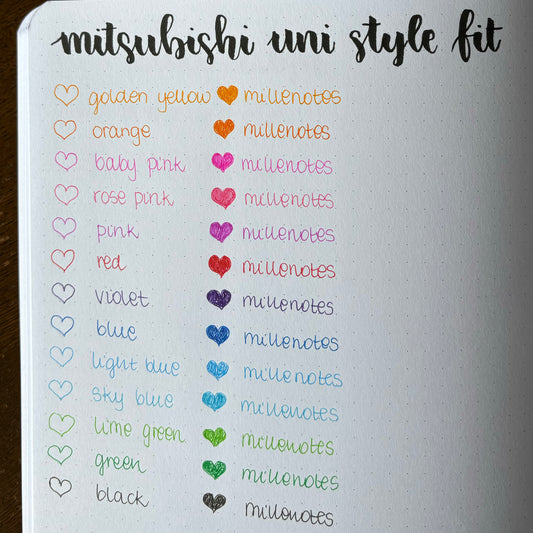 mitsubishi uni style fit
golden yellow millenotes
orange millenotes
baby pink millenotes
rose pink millenotes
pink millenotes
red millenotes
violet millenotes
blue millenotes
light blue millenotes
sky blue millenotes
lime green millenotes
green millenotes
black millenotes